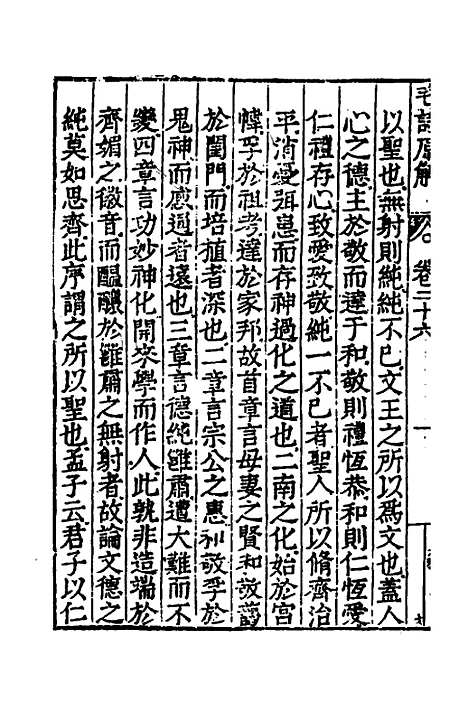 毛詩原解 卷二十六
以聖也無射則純純不已文王之所以爲文也蓋人
心之德主於敬而達于和敬則禮恆恭和則仁恆愛
仁禮存心致愛致敬純一不已者聖人所以脩齊治
平消憂弭患而存神過化之道也二南之化始於宮
幃孚於祖考達於家邦故首章言母妻之賢和敬藹
於閨門而培植者深也二章言宗公之惠和敬孚於
鬼神而感通者遠也三章言德純雖肅遭大難而不
變四章言功妙神化開來學而作人此孰非造端於
齊媚之徽音而醖釀於雖肅之無射者故論文德之
純莫如思齊此序謂之所以聖也孟子云君子以仁